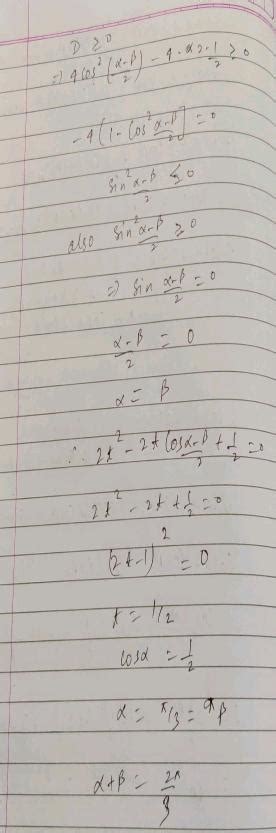 D ≥ 0
⇒ 4cos²(α-β/2) - 4·2·1/2 ≥ 0
-4[1 - cos² α-β/2] = 0
sin² α-β/2 ≤ 0
also sin² α-β/2 ≥ 0
⇒ sin α-β/2 = 0
α-β/2 = 0
α = β
∴ 2t² - 2t cos α-β/2 + 1/2 = 0
2t² - 2t + 1/2 = 0
(2t-1)² = 0
t = 1/2
cosα = 1/2
α = π/3 = β
α+β = 2π/3